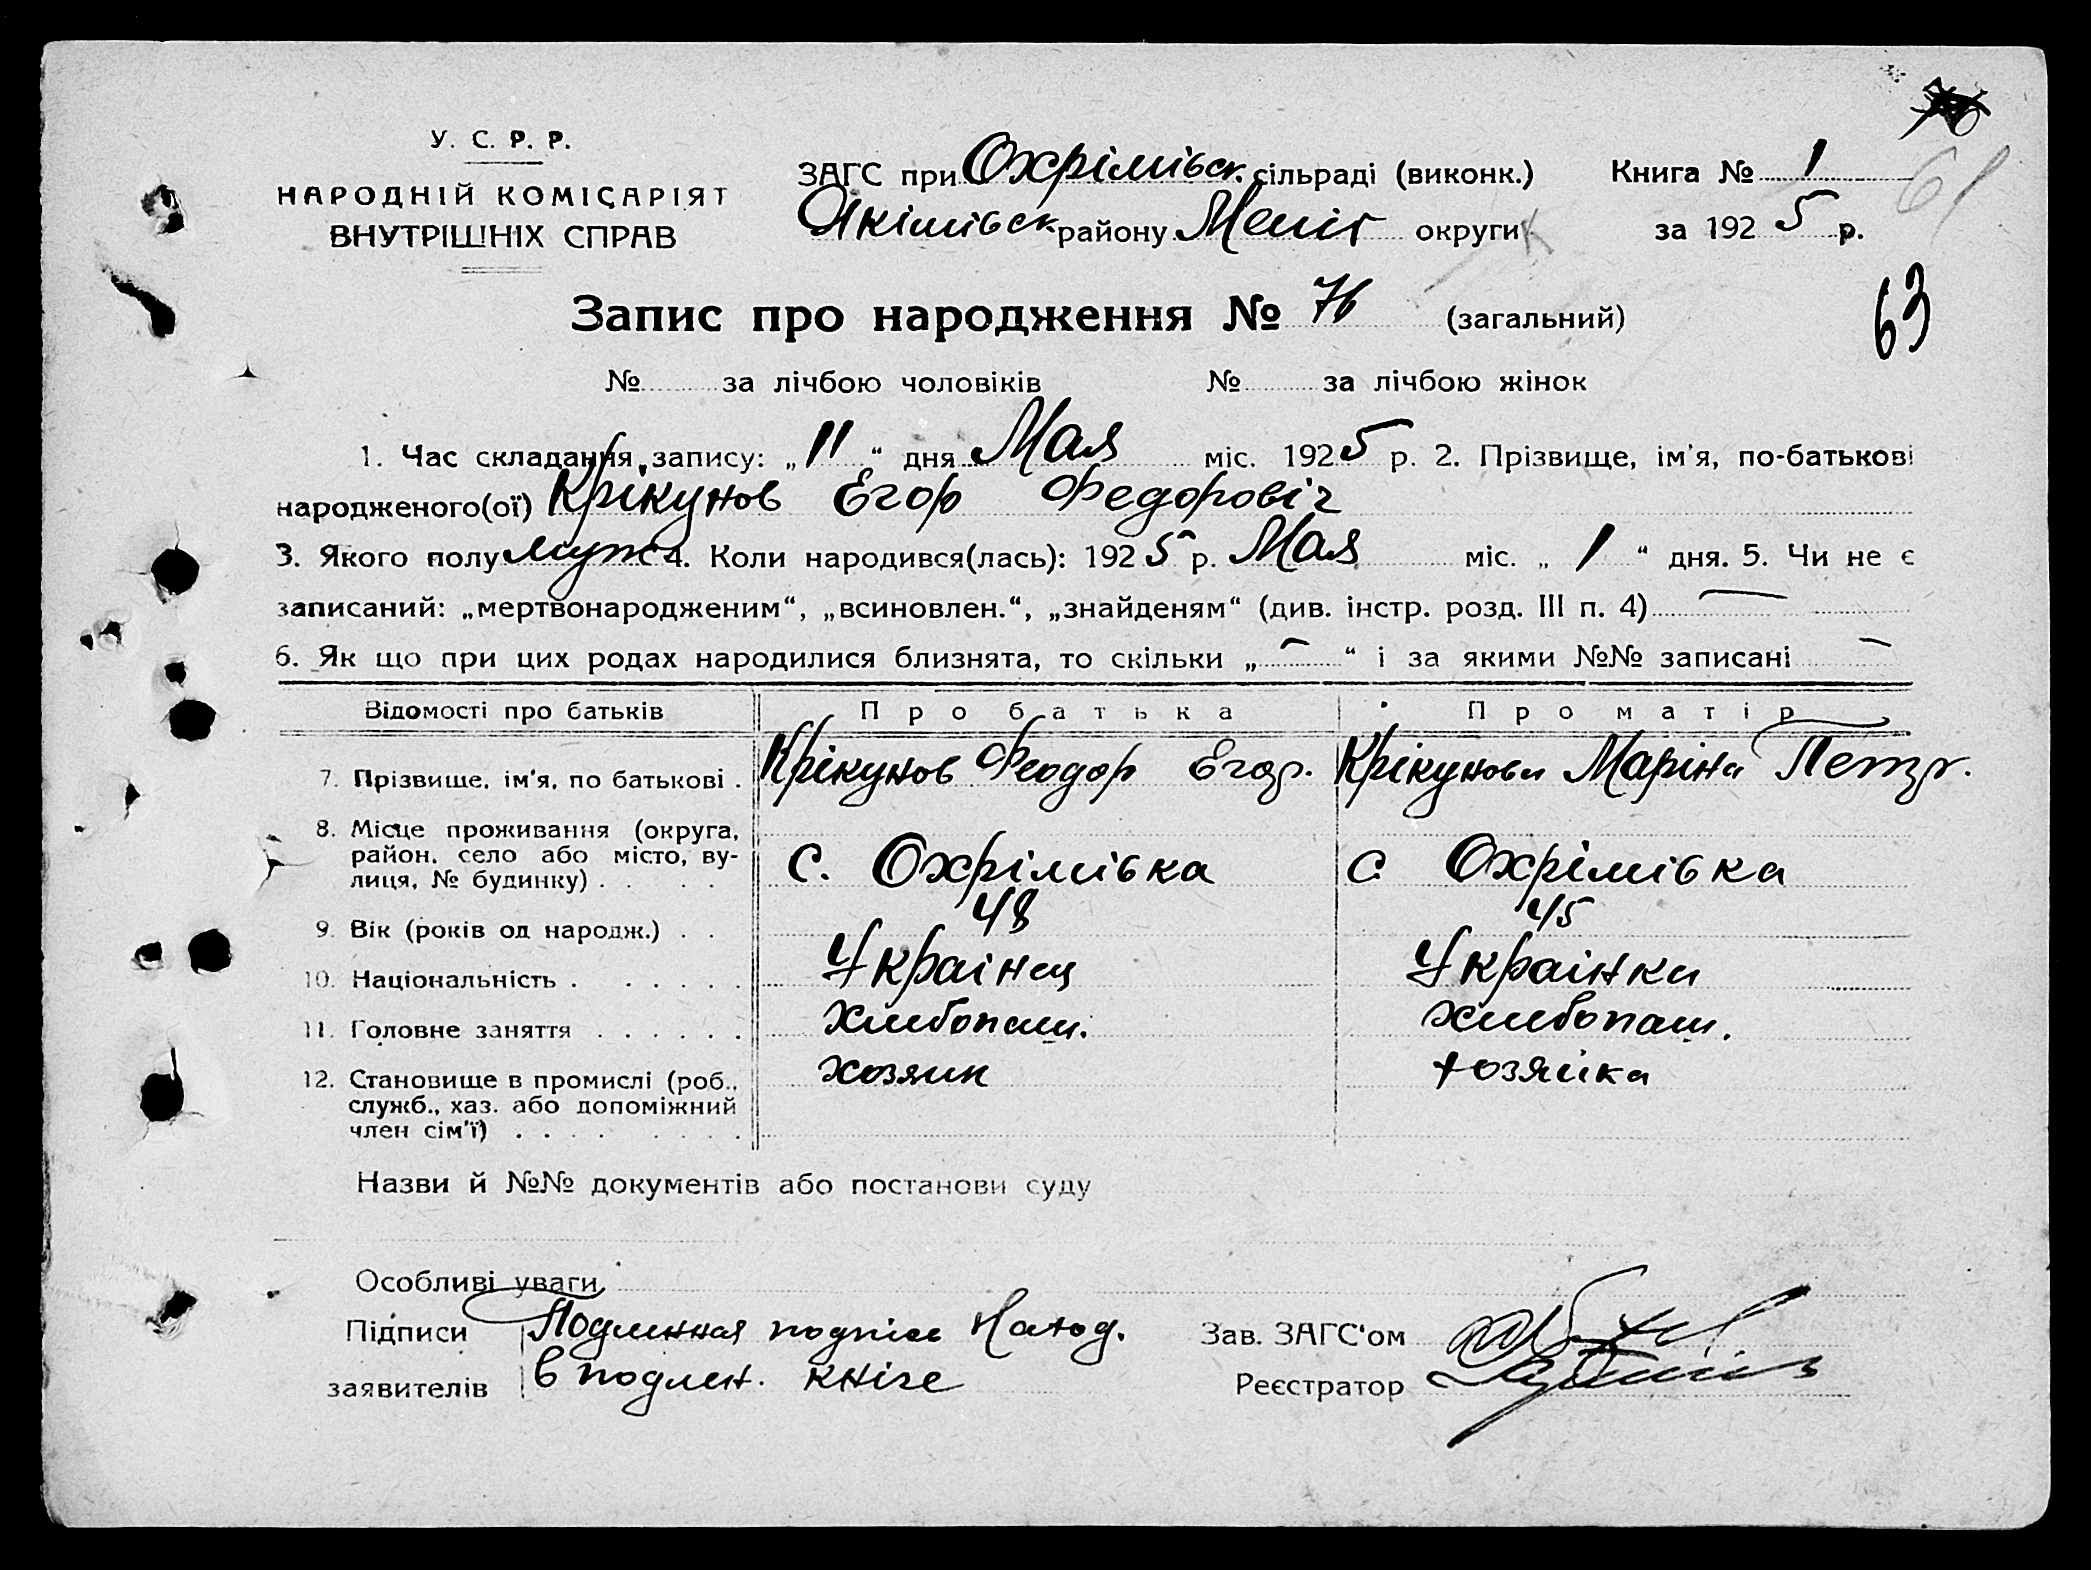 У. С. Р. Р.
НАРОДНІЙ КОМІСАРІЯТ
ВНУТРІШНІХ СПРАВ
ЗАГС при Охрімівск. сільраді (виконк.) Книга № 1
Якімівск району Меліт округи за 1925 р.
61
Запис про народження № 76 (загальний)
63
№ за лічбою чоловіків № за лічбою жінок
1. Час складання запису: „11“ дня Мая міс. 1925 р. 2. Прізвище, ім'я, по-батькові
народженого(ої) Крікунов Егор Федоровіч
3. Якого полу муж 4. Коли народився(лась): 1925 р. Мая міс. „1“ дня. 5. Чи не є
записаний: „мертвонародженим“, „всиновлен.“, „знайденям“ (див. інстр. розд. III п. 4) —
6. Як що при цих родах народилися близнята, то скільки „—“ і за якими №№ записані —
Відомості про батьків Про батька Про матір
7. Прізвище, ім'я, по батькові . Крікунов Феодор Егор. Крікунова Маріна Петр.
8. Місце проживання (округа,
район, село або місто, ву-
лиця, № будинку) . . . . с. Охрімівка с Охрімівка
9. Вік (років од народж.) . . 48 45
10. Національність . . . . . . Украінец Украінка
11. Головне заняття . . . . . . хлибопаш. хлибопаш.
12. Становище в промислі (роб., хозяин хозяйка
служб., хаз. або допоміжний
член сім'ї) . . . . . . . .
Назви й №№ документів або постанови суду
Особливі уваги
Підписи Подлинная подпісь Наход. Зав. ЗАГС'ом
заявителів в подлен. кніге Реєстратор